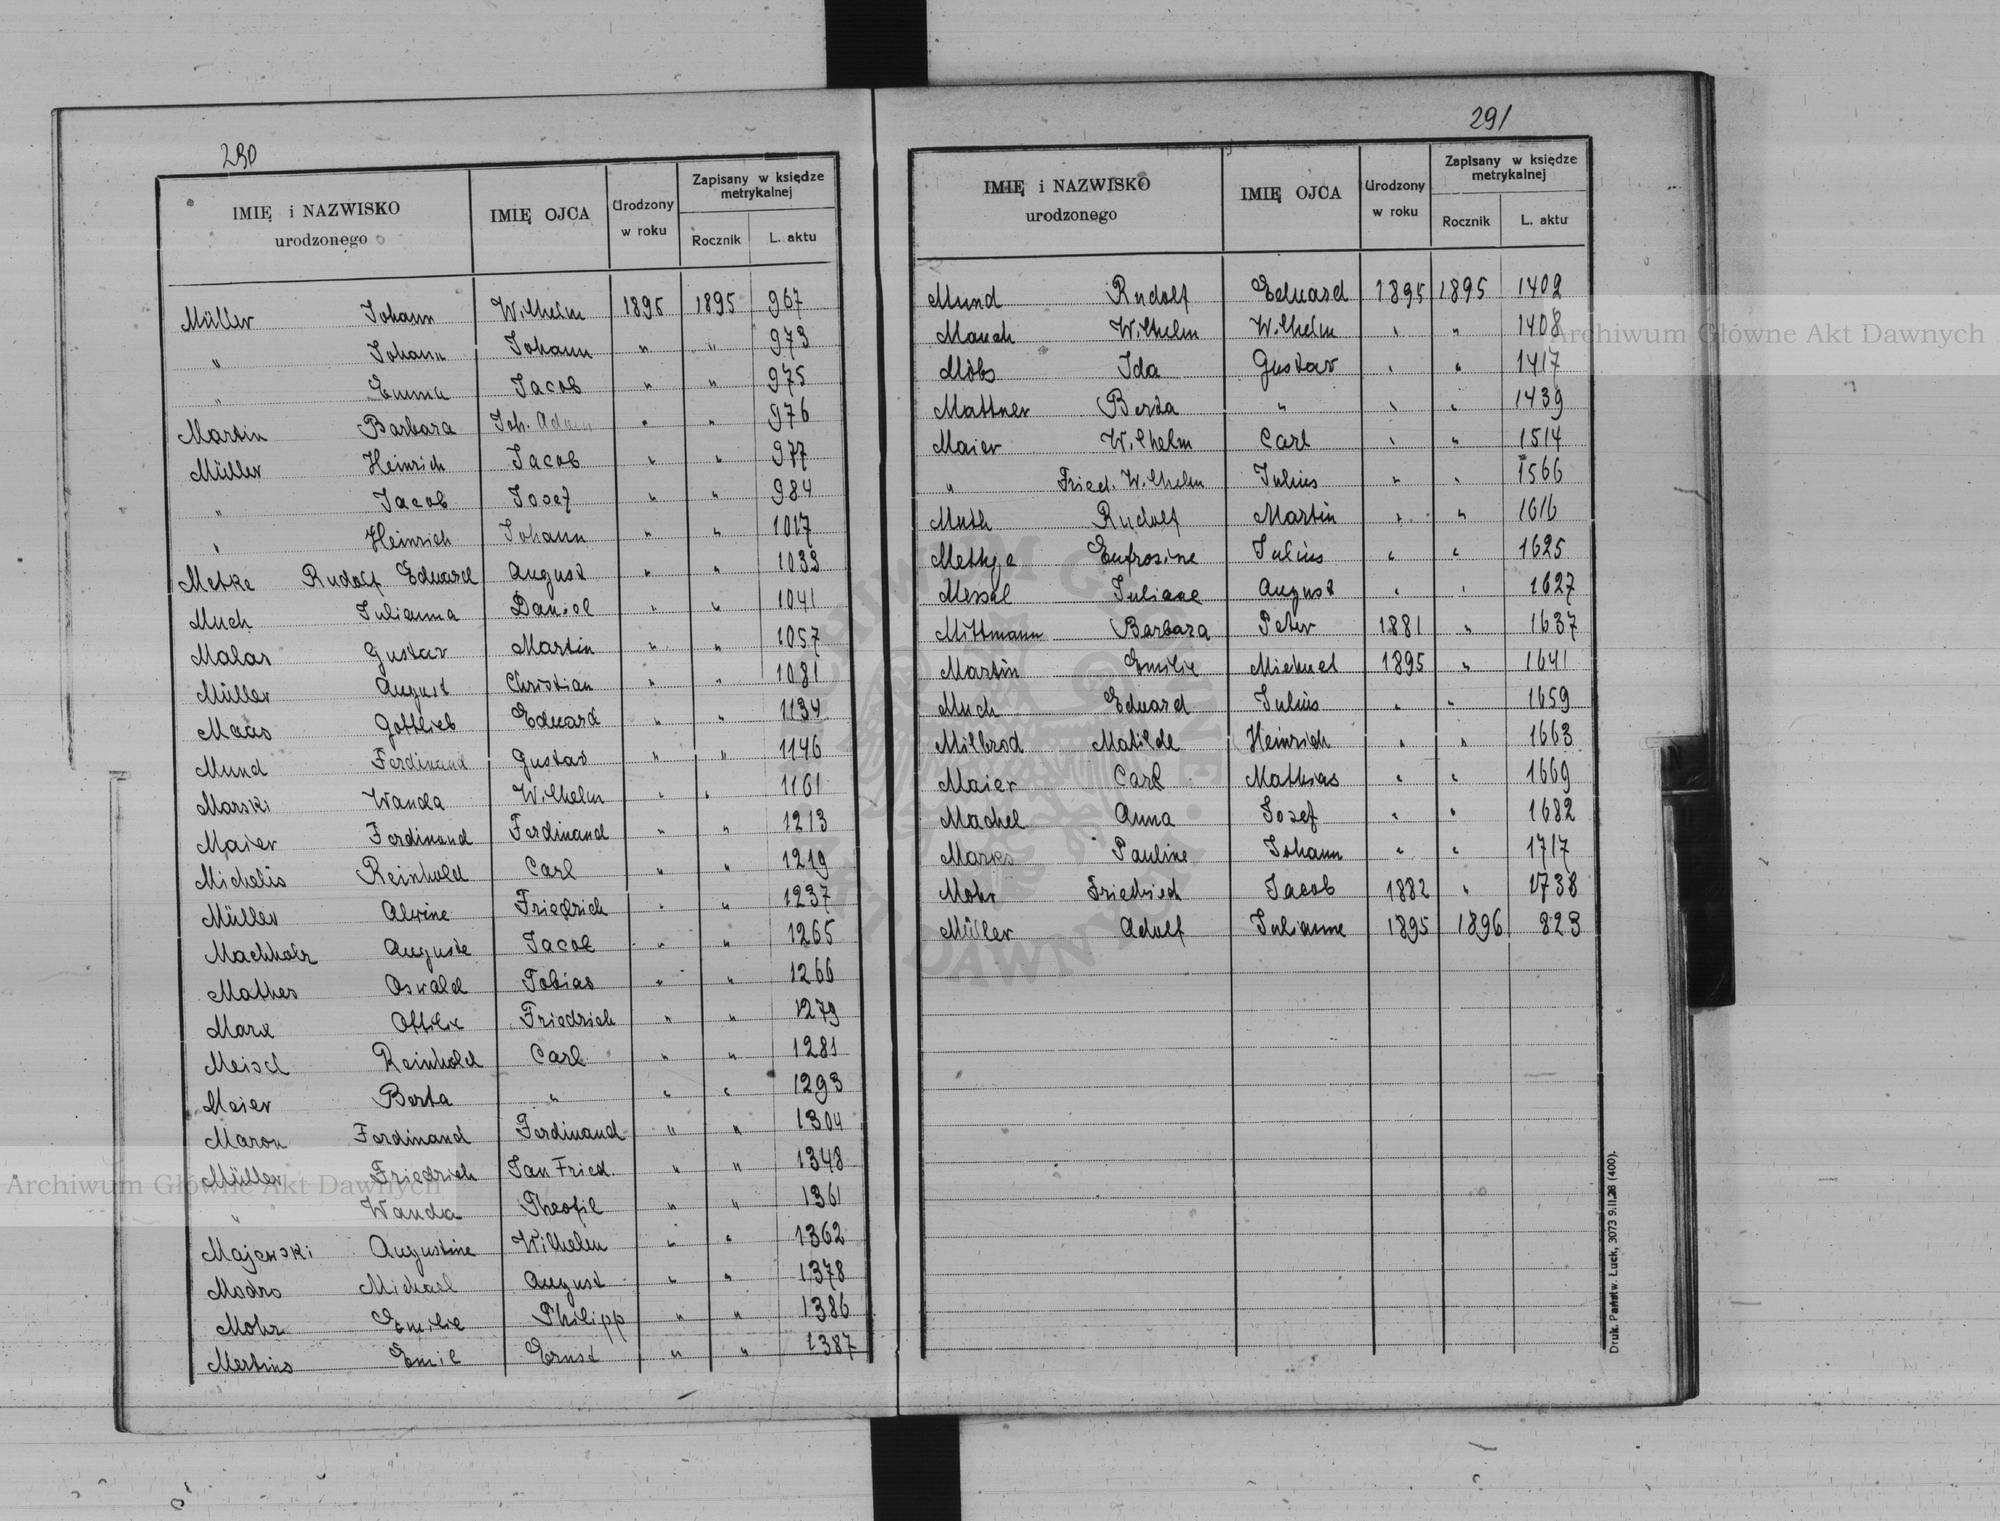 290
IMIĘ i NAZWISKO urodzonego | IMIĘ OJCA | Urodzony w roku | Zapisany w księdze metrykalnej
Rocznik | L. aktu
Müller Johann | Wilhelm | 1895 | 1895 | 967
" Johann | Johann | " | " | 973
" Emma | Jacob | " | " | 975
Martin Barbara | Joh. Adam | " | " | 976
Müller Heinrich | Jacob | " | " | 977
" Jacob | Josef | " | " | 984
" Heinrich | Johann | " | " | 1017
Metke Rudolf Eduard | August | " | " | 1033
Much Julianna | Daniel | " | " | 1041
Malas Gustav | Martin | " | " | 1057
Müller August | Christian | " | " | 1081
Maas Gottlieb | Eduard | " | " | 1134
Mund Ferdinand | Gustav | " | " | 1146
Marski Wanda | Wilhelm | " | " | 1161
Maier Ferdinand | Ferdinand | " | " | 1213
Michelis Reinhold | Carl | " | " | 1219
Müller Alwine | Friedrich | " | " | 1237
Machholz Auguste | Jacob | " | " | 1265
Mathes Oswald | Tobias | " | " | 1266
Marx Ottilie | Friedrich | " | " | 1279
Meisel Reinhold | Carl | " | " | 1281
Meier Berta | " | " | " | 1293
Maron Ferdinand | Ferdinand | " | " | 1304
Müller Friedrich | Jan Fried. | " | " | 1348
" Wanda | Theofil | " | " | 1361
Majewski Augustine | Wilhelm | " | " | 1362
Modro Michael | August | " | " | 1378
Mohr Emilie | Philipp | " | " | 1386
Mertins Emil | Ernst | " | " | 1387
291
IMIĘ i NAZWISKO urodzonego | IMIĘ OJCA | Urodzony w roku | Zapisany w księdze metrykalnej
Rocznik | L. aktu
Mund Rudolf | Eduard | 1895 | 1895 | 1402
Mauch Wilhelm | Wilhelm | " | " | 1408
Möbs Ida | Gustav | " | " | 1417
Mattner Berta | " | " | " | 1439
Maier Wilhelm | Carl | " | " | 1514
" Fried. Wilhelm | Julius | " | " | 1566
Muth Rudolf | Martin | " | " | 1616
Methge Eufrosine | Julius | " | " | 1625
Messal Juliane | August | " | " | 1627
Mittmann Barbara | Peter | 1881 | " | 1637
Martin Emilie | Michael | 1895 | " | 1641
Much Eduard | Julius | " | " | 1659
Milbrod Matilde | Heinrich | " | " | 1663
Maier Carl | Mathias | " | " | 1669
Machel Anna | Josef | " | " | 1682
Marks Pauline | Johann | " | " | 1717
Mohr Friedrich | Jacob | 1882 | " | 1738
Müller Adolf | Julianne | 1895 | 1896 | 823
Druk. Państw. Łuck, 3073 9.II.28 (400).
Archiwum Główne Akt Dawnych
Archiwum Główne Akt Dawnych
ARCHIWUM GŁÓWNE AKT DAWNYCH